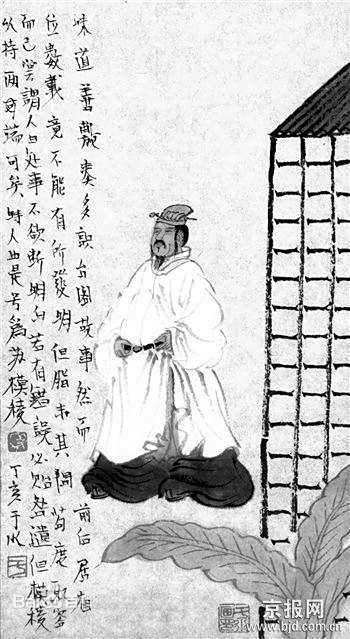 味道善敷奏多識台閣故事然而前后居相
位數載竟不能有所發明但脂韦其间苟度取容
而已嘗謂人曰处事不欲断明白若有錯誤必貽咎譴但模稜
以持两端可矣時人由是号為苏模稜
丁亥于水
京报网
www.bjd.com.cn